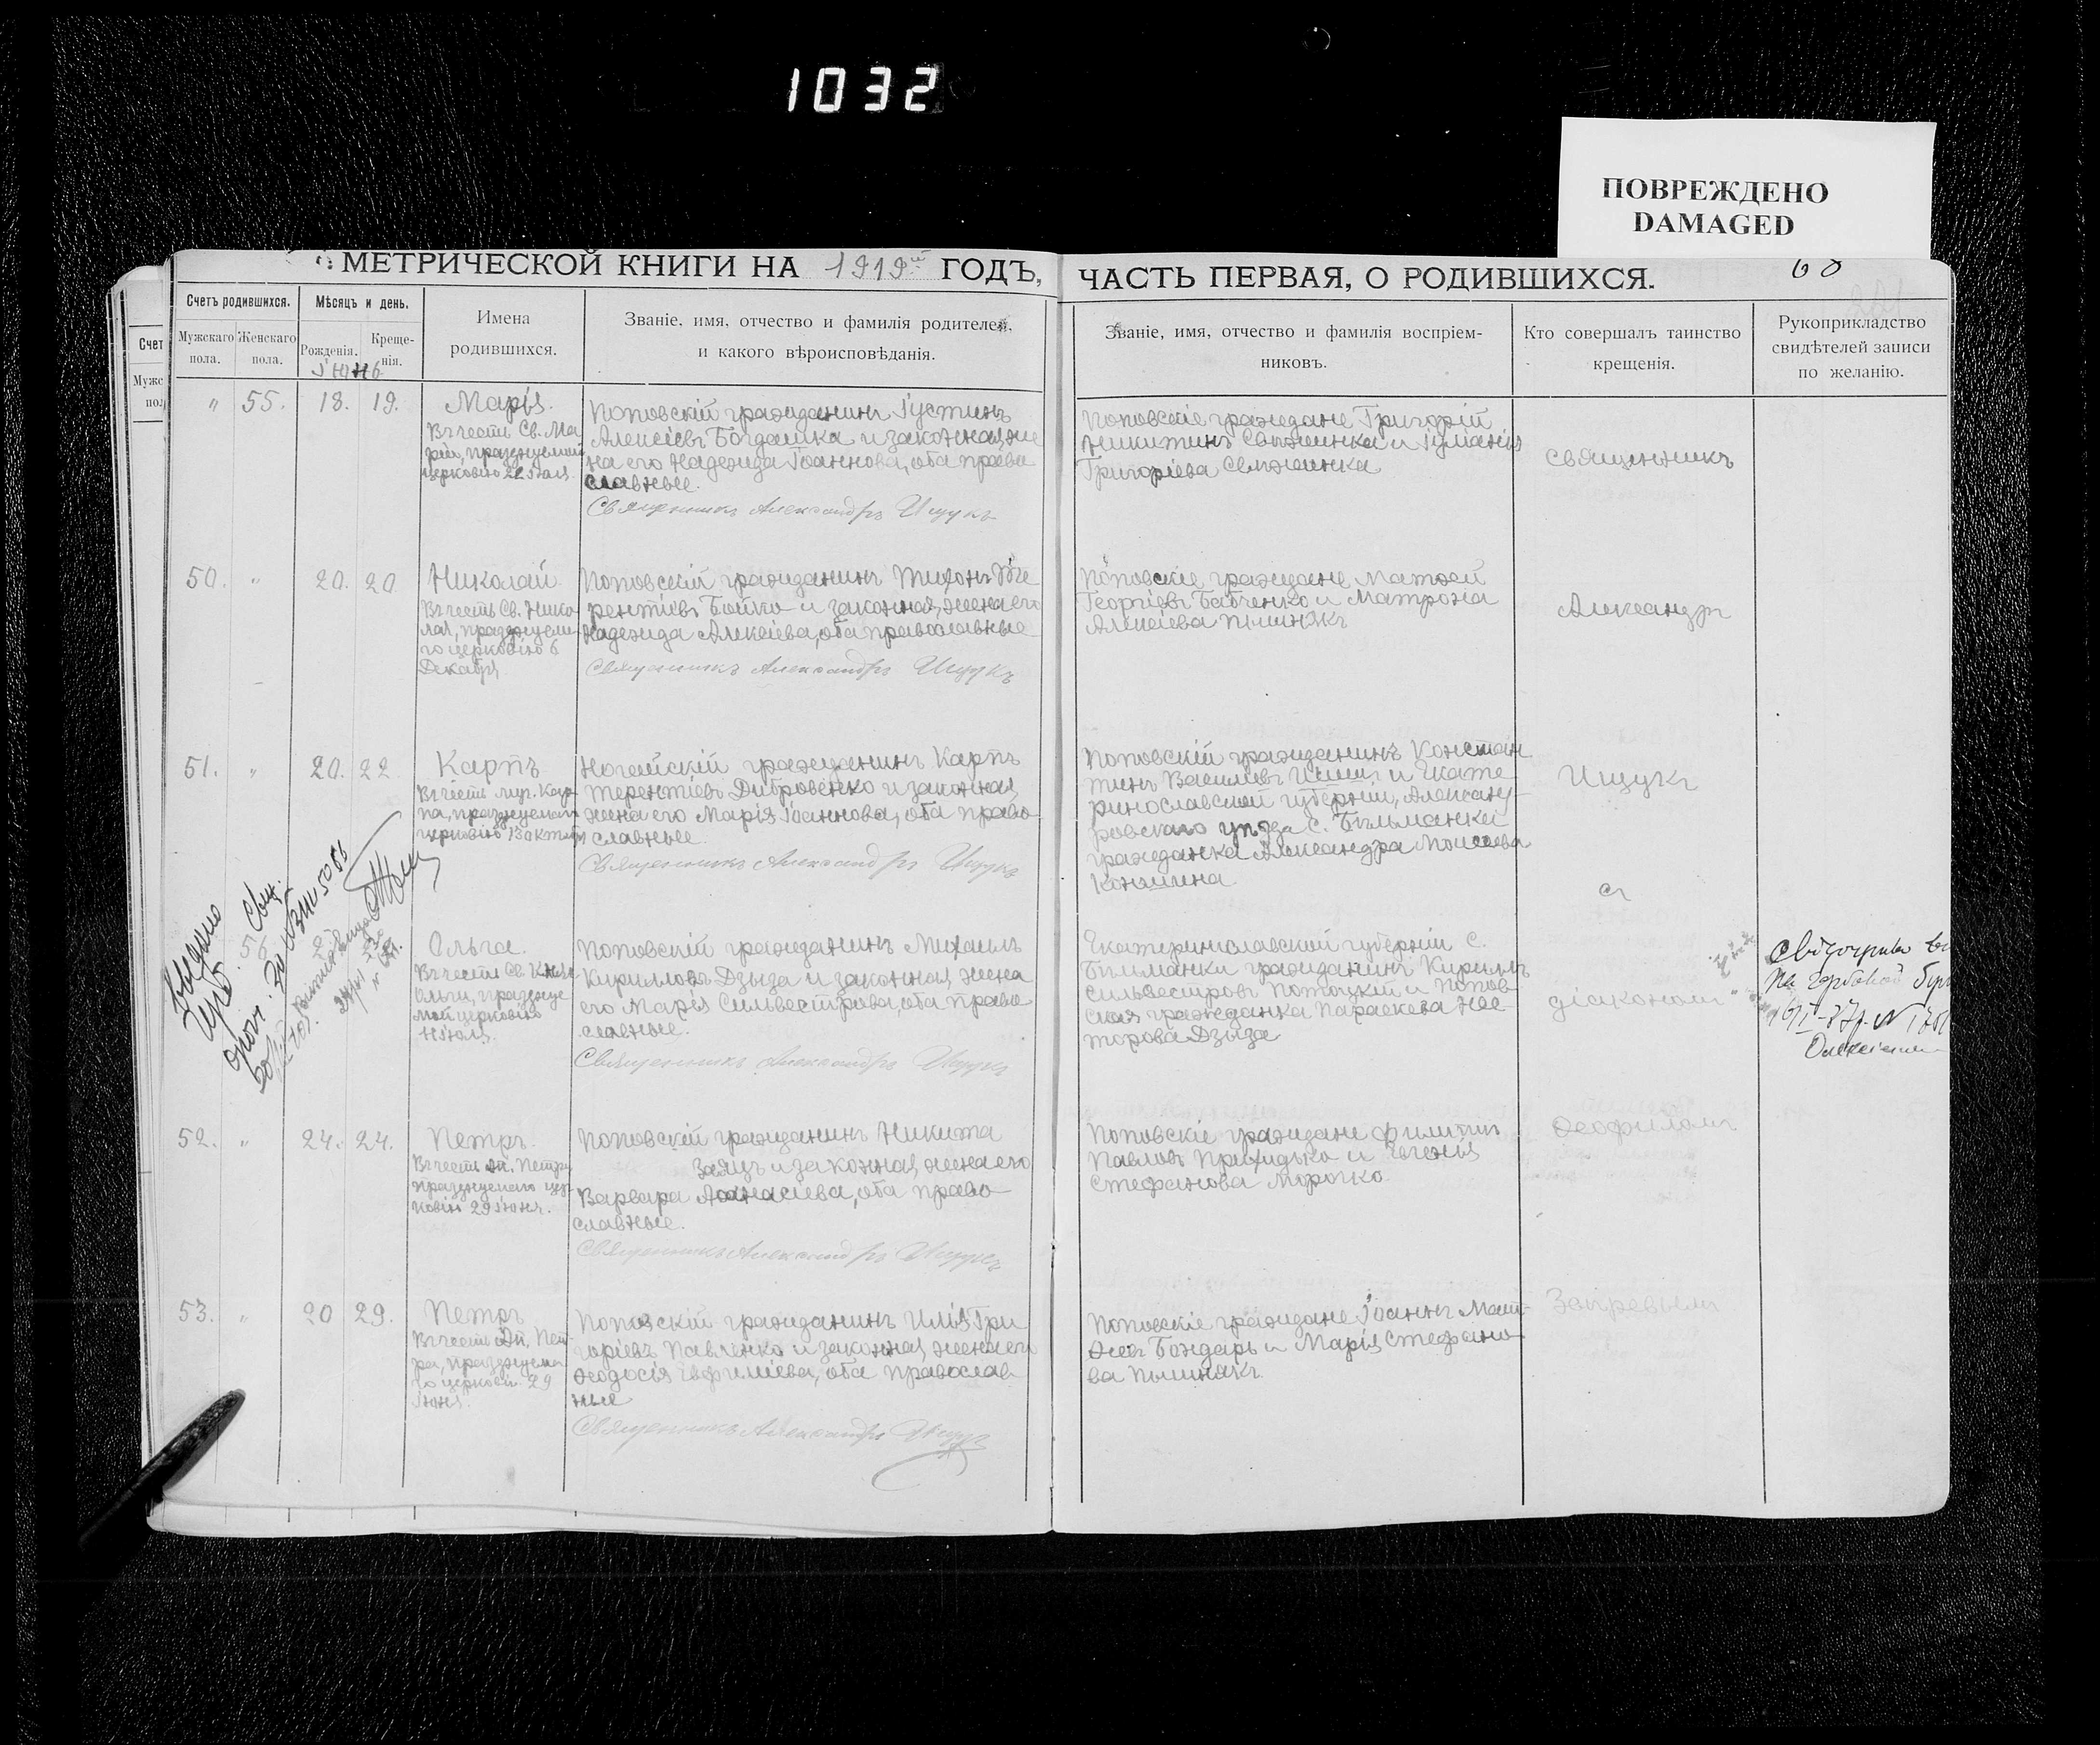 1032
ПОВРЕЖДЕНО
DAMAGED
МЕТРИЧЕСКОЙ КНИГИ НА 1919й ГОДЪ,
ЧАСТЬ ПЕРВАЯ, О РОДИВШИХСЯ.
68
Счетъ родившихся.
Мужскаго пола.
Женскаго пола.
Мѣсяцъ и день.
Рожденія.
Креще-
нія.
Імена
родившихся.
Званіе, имя, отчество и фамилія родителей,
и какого вѣроисповѣданія.
Званіе, имя, отчество и фамилія воспріем-
никовъ.
Кто совершалъ таинство
крещенія.
Рукоприкладство
свидѣтелей записи
по желанію.
Счет
Мужс
пол
Іюнь
" 55. 18. 19.
Марія.
Въ честь Св. Ма
ріи, празднуемой
церковію 22 Іюля.
Поповскій гражданинъ Іустинъ
Алексіевъ Богдашка и законная же
на его Надежда Іоаннова, оба право
славные.
Священникъ Александръ Ищукъ
Поповскіе граждане Григорій
Никитинъ и
Григоріева
Священникъ
50. " 20. 20
Николай
Въ честь Св. Нико-
лая, празднуемо-
го церковію 6
Декабря
Поповскій гражданинъ Тихонъ Те
рентіевъ Бойко и законная жена его
Надежда Алексіева, оба православные
Священникъ Александръ Ищукъ
Поповскіе граждане Матѳей
Георгіевъ Бабченко и Матрона
Алексіева Пышнякъ
Александръ
51. " 20. 22
Карпъ
Въ честь муч. Кар-
па, празднуемаго
церковію 13 Октября
Ногайскій гражданинъ Карпъ
Терентіевъ Дибровенко и законная
жена его Марія Іоаннова, оба право-
славные.
Священникъ Александръ Ищукъ
Поповскій гражданинъ Констан
тинъ Васильевъ и Екате
ринославской губерніи, Александ-
ровскаго уѣзда с. Бѣльманки
гражданка Александра Моисеева
Коншина
Ищукъ
съ
56
Ольга.
Въ честь Св. Княг.
Ольги, праздну
мой церковію
11 Іюля.
Поповскій гражданинъ Михаилъ
Кирилловъ Дзыза и законная жена
его Марія Сильвестрова, оба право
славные.
Священникъ Александръ Ищукъ
Екатеринославской губерніи с.
Бѣльманки гражданинъ Кириллъ
Сильвестровъ Потоцкій и Попов-
ская гражданка Параскева Нес-
торова Дзыза
діакономъ
52. " 24. 24.
Петръ.
Въ честь Ап. Петра
празднуемаго цер-
ковію 29 Іюня.
Поповскій гражданинъ Никита
Заяцъ и законная жена его
Варвара Аѳанасіева, оба право-
славные.
Священникъ Александръ Ищукъ
Поповскіе граждане Филиппъ
Павловъ Приходько и Евгенія
Стефанова Морочко
Ѳеофиломъ
53. " 20 29.
Петръ
Въ честь Ап. Пет-
ра, празднуема
го церковію 29
Іюня.
Поповскій гражданинъ Илія Гри
горіевъ Павленко и законная жена его
Ѳеодосія Евфиміева, оба православ-
ные
Священникъ Александръ Ищукъ
Поповскіе граждане Іоаннъ Мат-
ѳіевъ Бондарь и Марія Стефано-
ва Пышнякъ